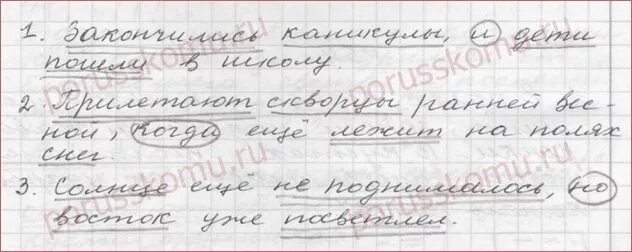 1. Закончились каникулы, и дети
пошли в школу.
2. Прилетают скворцы ранней вес-
ной, когда ещё лежит на полях
снег.
3. Солнце ещё не поднималось, но
восток уже посветлел.
porusskomu.ru
porusskomu.ru
porusskomu.ru